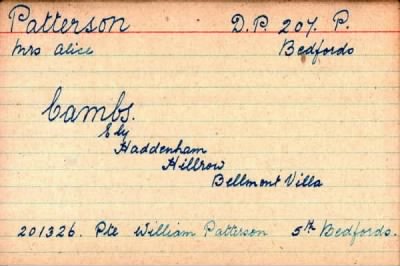 Patterson D.P. 207. P.
Mrs Alice Bedfords
Cambs.
Ely
Haddenham
Hillrow
Bellmont Villa
201326. Pte William Patterson 5th Bedfords.